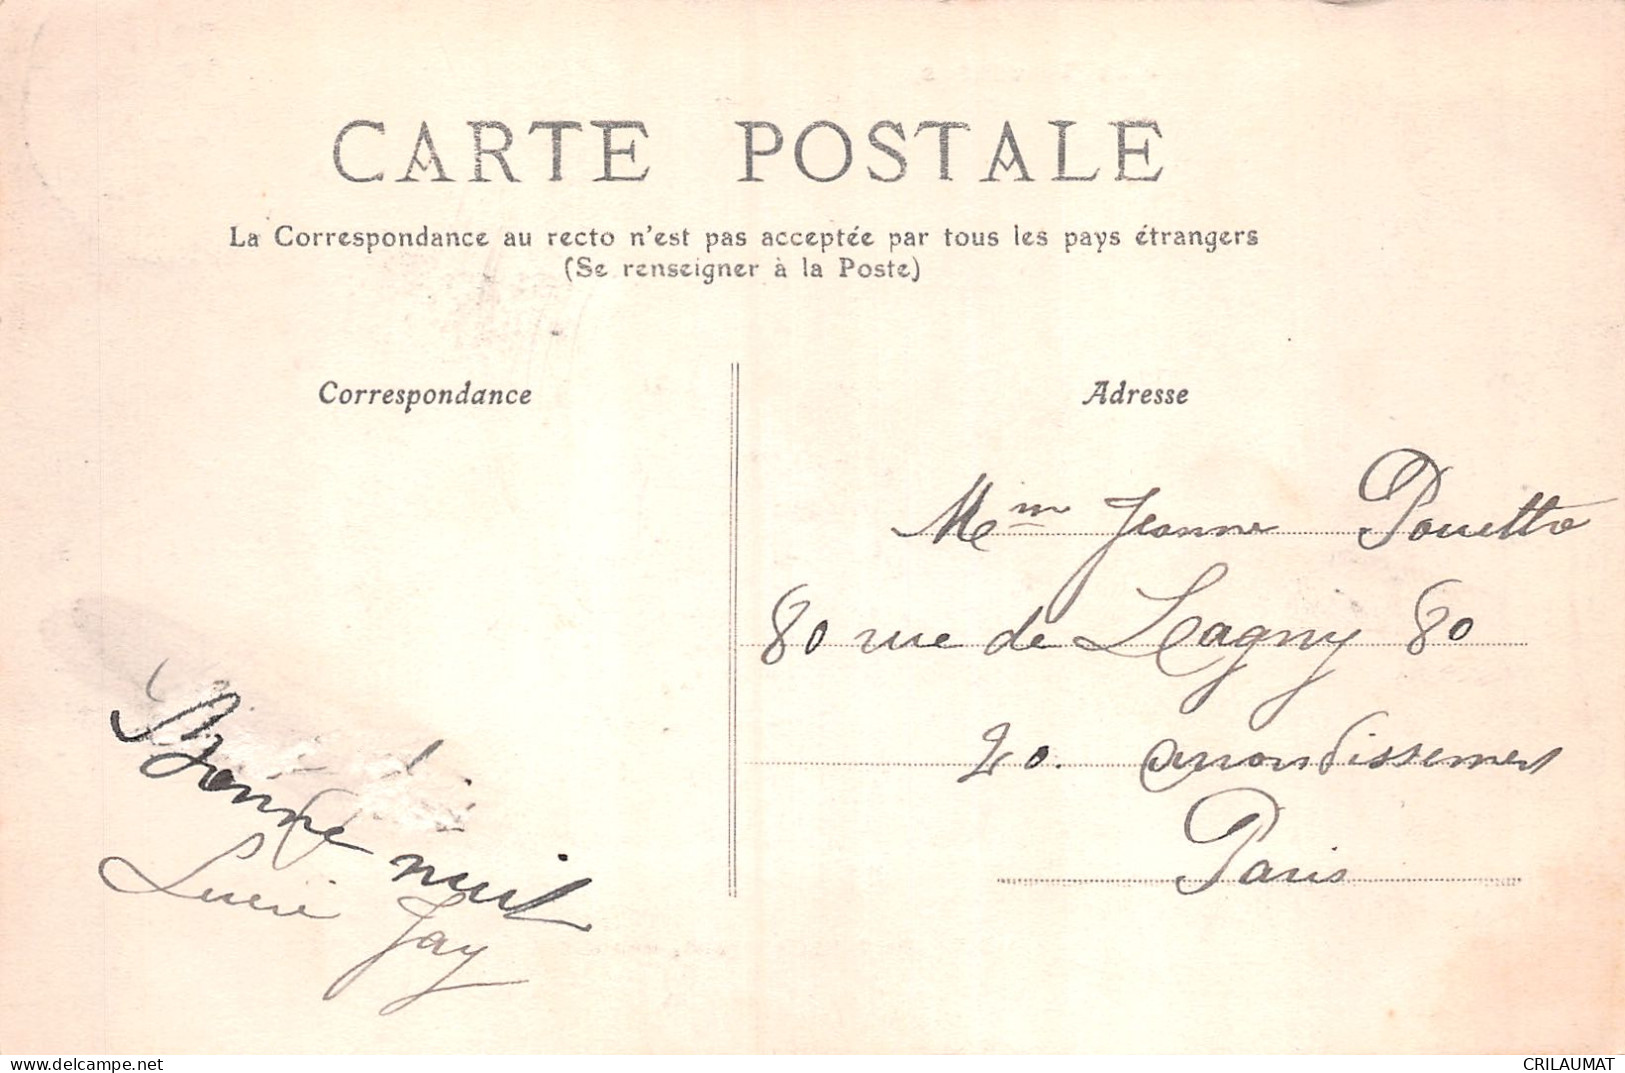 CARTE POSTALE
La Correspondance au recto n'est pas acceptée par tous les pays étrangers
(Se renseigner à la Poste)
Correspondance
Adresse
Mem Jeanne Pouette
80 rue de Lagny 80
20. arrondissement
Paris
Bonne nuit
Lucie Jay
delcampe.net
CRILAUMAT